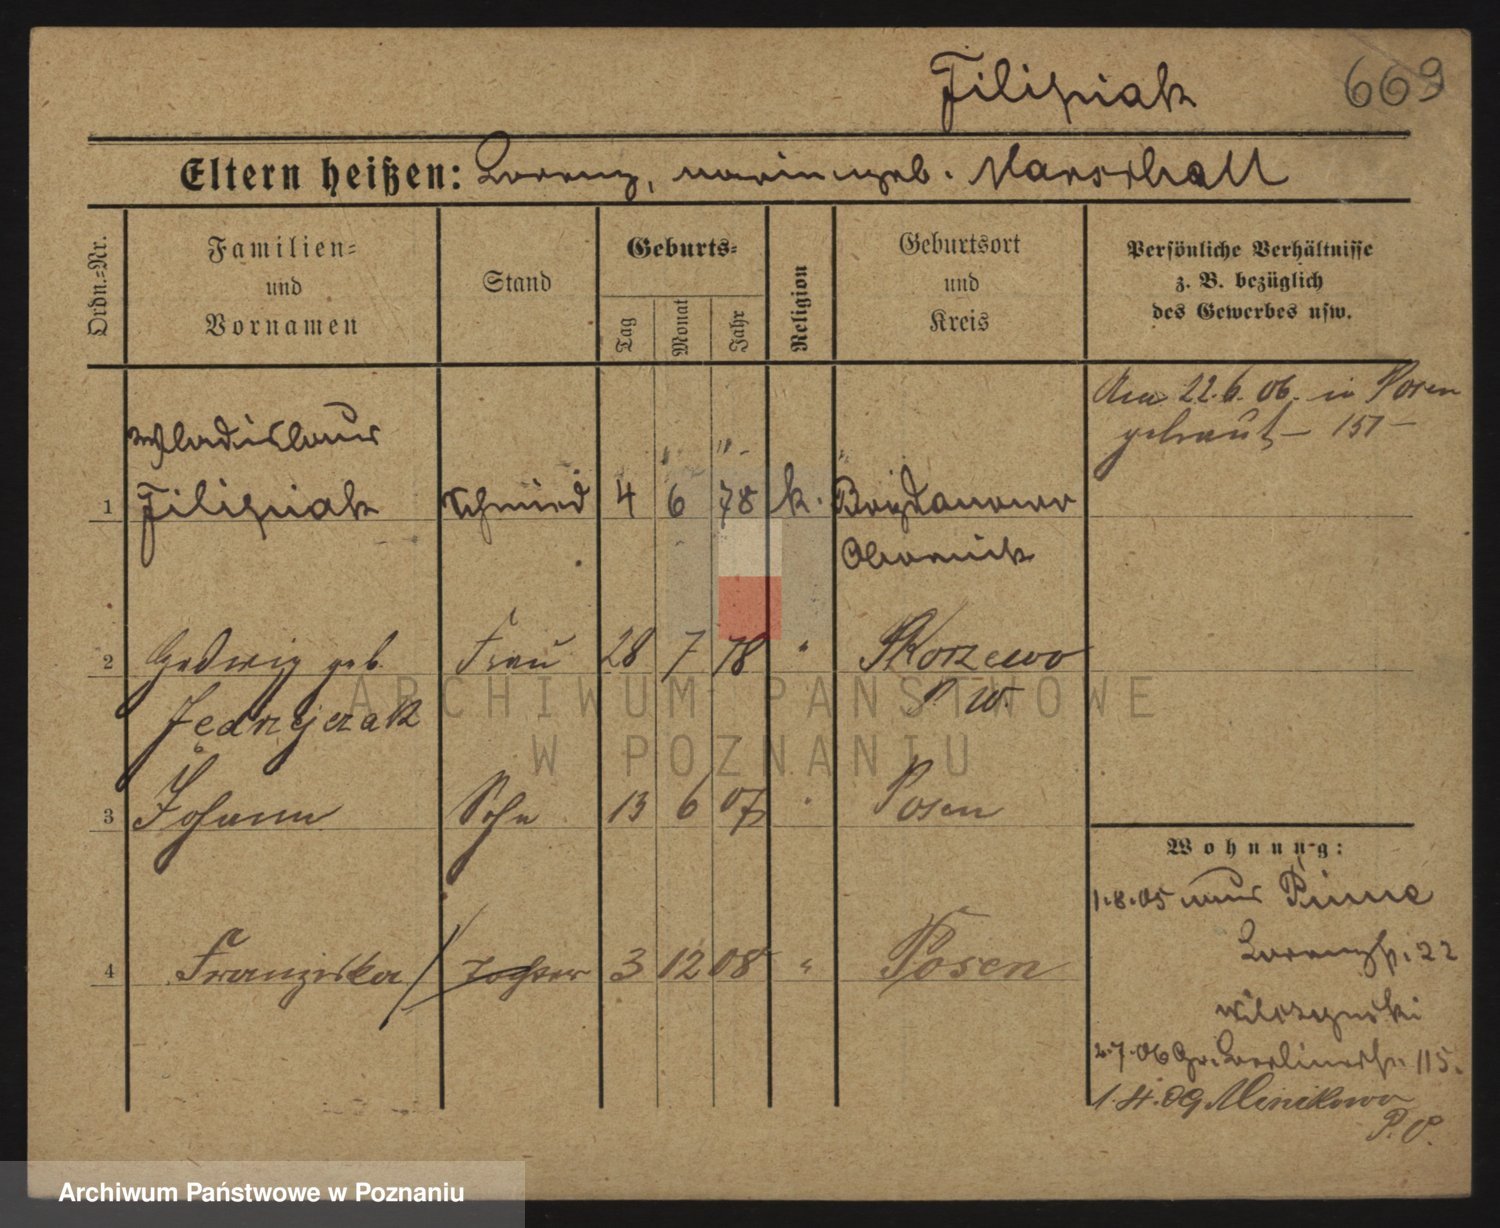 Filipiak
669
Eltern heißen: Lorenz, Marianna geb. Marschall
Ordn.-Nr.
Familien= und Vornamen
Stand
Geburts=
Tag
Monat
Jahr
Religion
Geburtsort und Kreis
Persönliche Verhältnisse
z. B. bezüglich
des Gewerbes usw.
Am 22.6.06. in Posen
getraut – 151 –
Wladislaus
1 Filipiak Schmied 4 6 78 k. Bogdanowo
Obornik
2 Hedwig geb. Frau 28 7 78 " Skorzewo
Jedrzejczak P. W.
3 Johann Sohn 13 6 07 " Posen
4 Franziska Tochter 3 12 08 " Posen
Wohnung:
1.8.05 aus Pinne
Lorenzstr. 22
Wilczynski
2.7.06 Gr. Berlinerstr. 115.
1.4.09 Minikowo
P. O.
ARCHIWUM PAŃSTWOWE
W POZNANIU
Archiwum Państwowe w Poznaniu